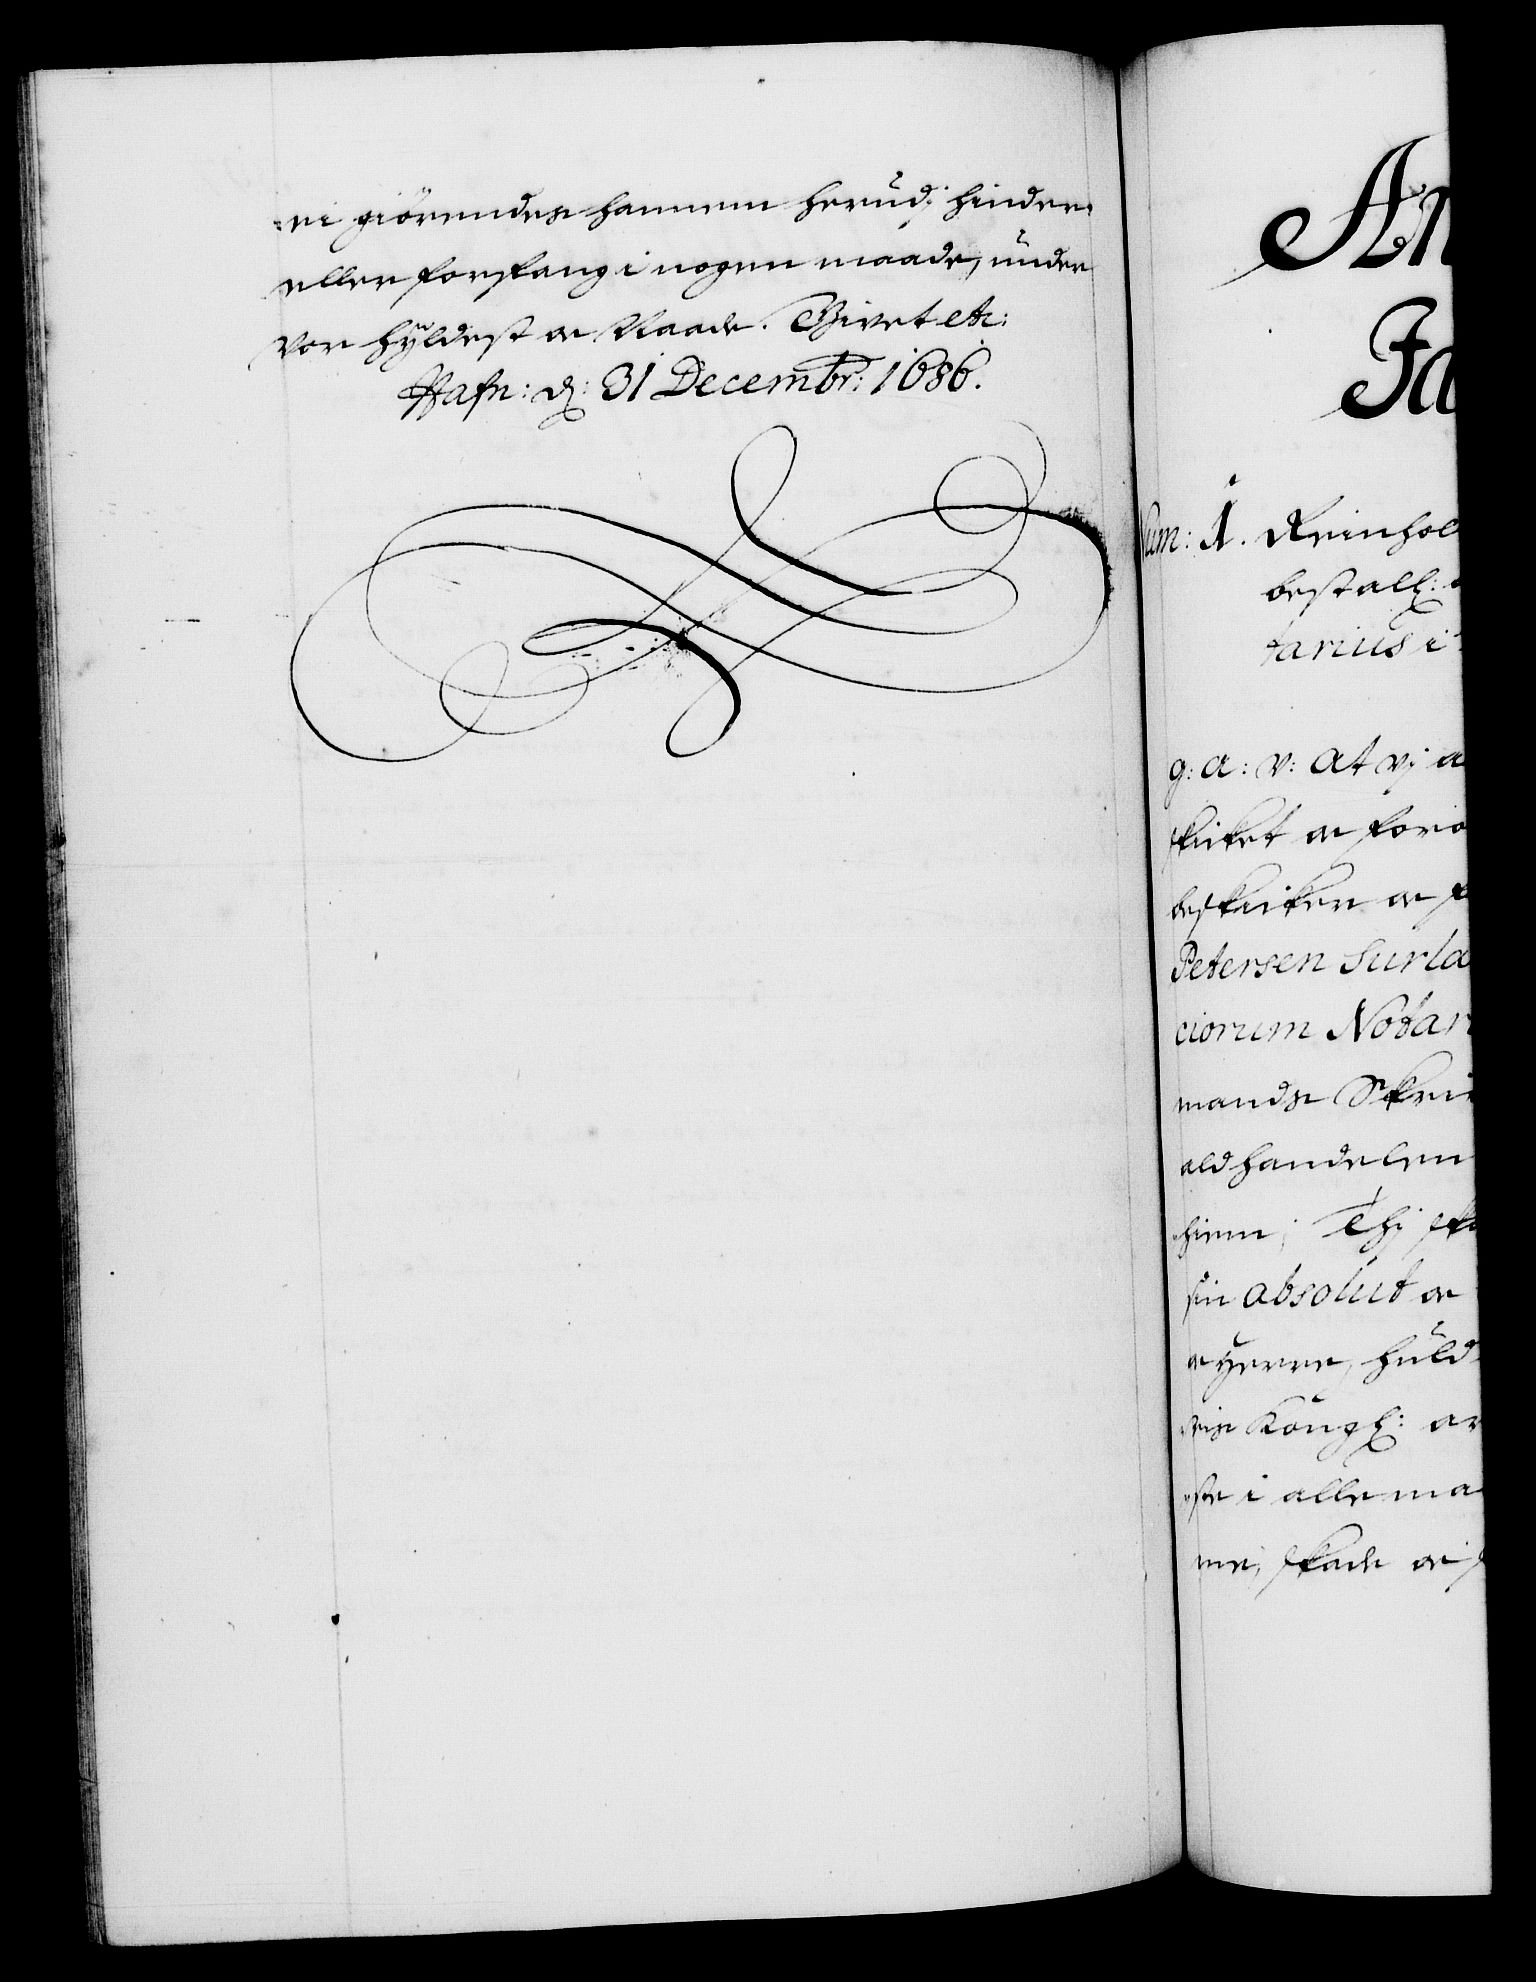 ei giörendes hannem herudj hinder
eller forfang i nogen maade, under
vor hyldest oc Naade. Givet etc:
Hafn: d: 31 Decembr: 1686.
An
Ja
Num: 1. Reinhol
bestall:
tarius i
g: a: v: at vj a
skicket oc foro
beskicker oc f
Petersen Surla
ciorum Notar
mands Skri
ald handelen
hiem; Thj sk
sin absolut oc
oc Herre, huld
vis Kongl: ar
ste i alle ma
me, skade oc